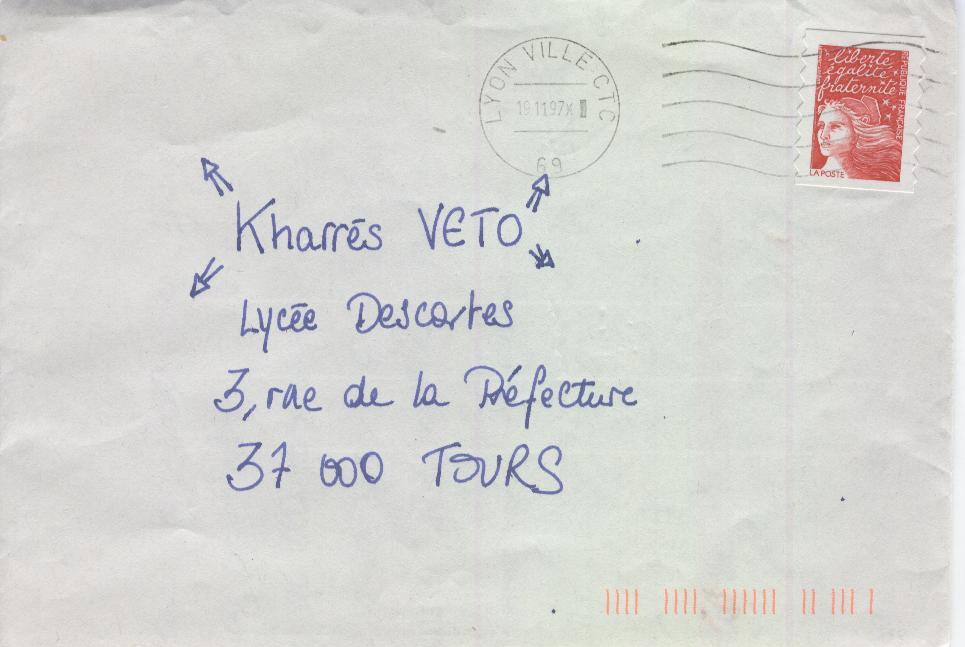 LYON VILLE-CTC
19 11 97 X
69
liberté
égalité
fraternité
RÉPUBLIQUE FRANÇAISE
LA POSTE
Kharrés VETO
Lycée Descartes
3, rue de la Préfecture
37 000 TOURS